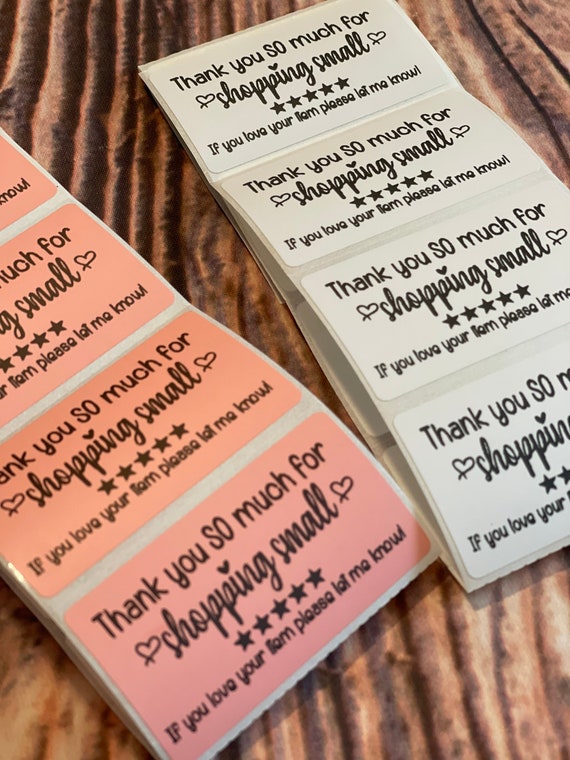 Thank you SO much for
shopping small
★★★★★
If you love your item please let me know!
Thank you SO much for
shopping small
★★★★★
If you love your item please let me know!
Thank you SO much for
shopping small
★★★★★
If you love your item please let me
Thank you SO much
shopping
If you love your item
know!
much for
small
★★★
please let me know!
you SO much for
shopping small
★★★★★
If you love your item please let me know!
Thank you SO much for
shopping small
★★★★★
If you love your item please let me know!